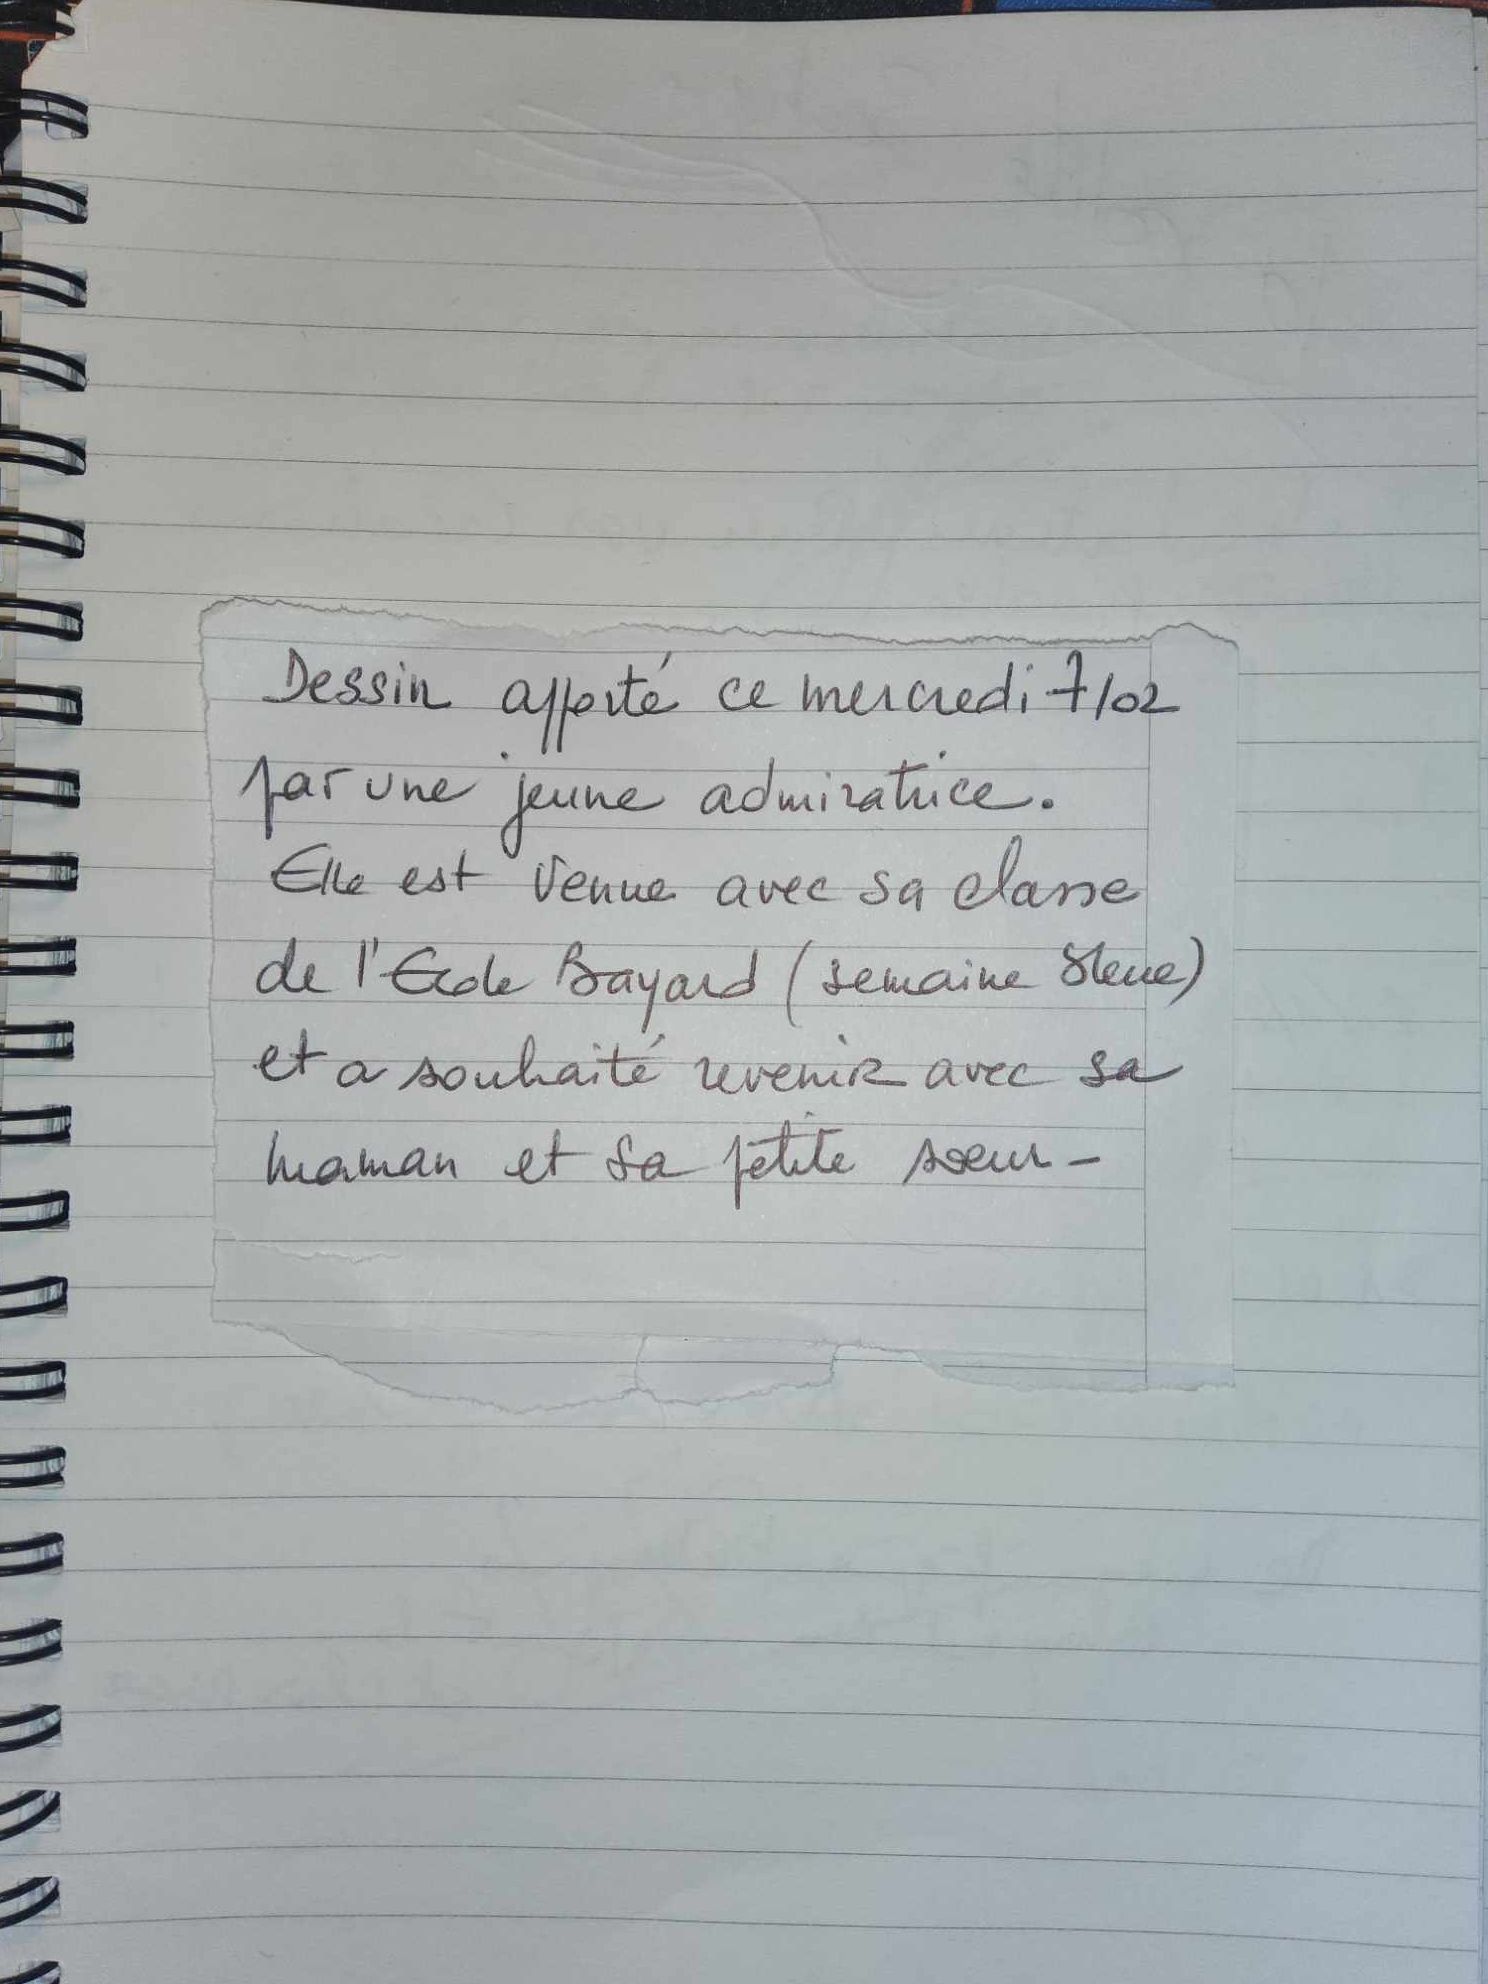 Dessin apporté ce mercredi 7/02
par une jeune admiratrice.
Elle est venue avec sa classe
de l'Ecole Bayard (semaine bleue)
et a souhaité revenir avec sa
maman et sa petite soeur -